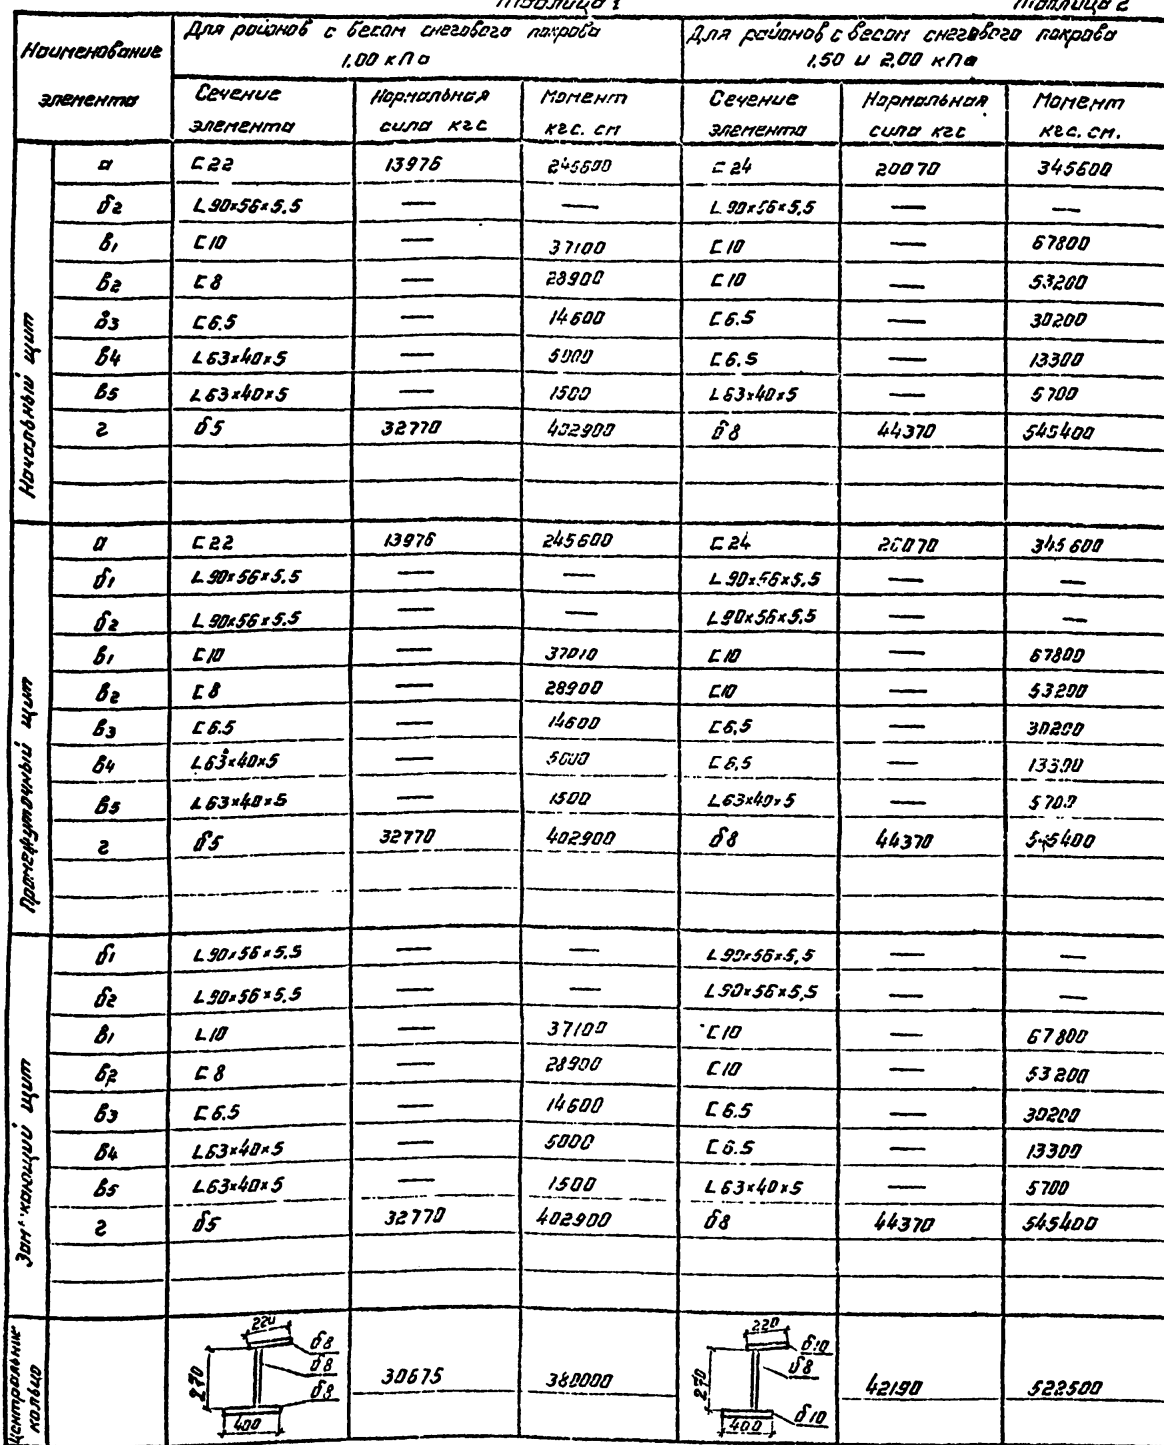 Таблица 1 Таблица 2
Наименование элемента
Для районов с весом снегового покрова 1,00 кПа
Для районов с весом снегового покрова 1,50 и 2,00 кПа
Сечение элемента | Нормальная сила кгс | Момент кгс. см | Сечение элемента | Нормальная сила кгс | Момент кгс. см.
Начальный щит
а | С 22 | 13976 | 245600 | С 24 | 20070 | 345600
б2 | L 90×56×5,5 | — | — | L 90×56×5,5 | — | —
в1 | С 10 | — | 37100 | С 10 | — | 67800
в2 | С 8 | — | 28900 | С 10 | — | 53200
в3 | С 6.5 | — | 14600 | С 6.5 | — | 30200
в4 | L 63×40×5 | — | 5000 | С 6.5 | — | 13300
в5 | L 63×40×5 | — | 1500 | L 63×40×5 | — | 5700
г | δ5 | 32770 | 402900 | δ8 | 44370 | 545400
Промежуточный щит
а | С 22 | 13976 | 245600 | С 24 | 20070 | 345600
б1 | L 90×56×5,5 | — | — | L 90×56×5,5 | — | —
б2 | L 90×56×5,5 | — | — | L 90×56×5,5 | — | —
в1 | С 10 | — | 37010 | С 10 | — | 67800
в2 | С 8 | — | 28900 | С 10 | — | 53200
в3 | С 6.5 | — | 14600 | С 6,5 | — | 30200
в4 | L 63×40×5 | — | 5000 | С 6,5 | — | 13300
в5 | L 63×40×5 | — | 1500 | L 63×40×5 | — | 5700
г | δ5 | 32770 | 402900 | δ8 | 44370 | 545400
Замыкающий щит
б1 | L 90×56×5,5 | — | — | L 90×56×5,5 | — | —
б2 | L 90×56×5,5 | — | — | L 90×56×5,5 | — | —
в1 | L 10 | — | 37100 | С 10 | — | 67800
в2 | С 8 | — | 28900 | С 10 | — | 53200
в3 | С 6.5 | — | 14600 | С 6.5 | — | 30200
в4 | L 63×40×5 | — | 5000 | С 6.5 | — | 13300
в5 | L 63×40×5 | — | 1500 | L 63×40×5 | — | 5700
г | δ5 | 32770 | 402900 | δ8 | 44370 | 545400
Центральное кольцо
220 δ8 δ8 δ8 270 400 | 30675 | 380000 | 220 δ10 δ8 δ10 270 400 | 42190 | 522500